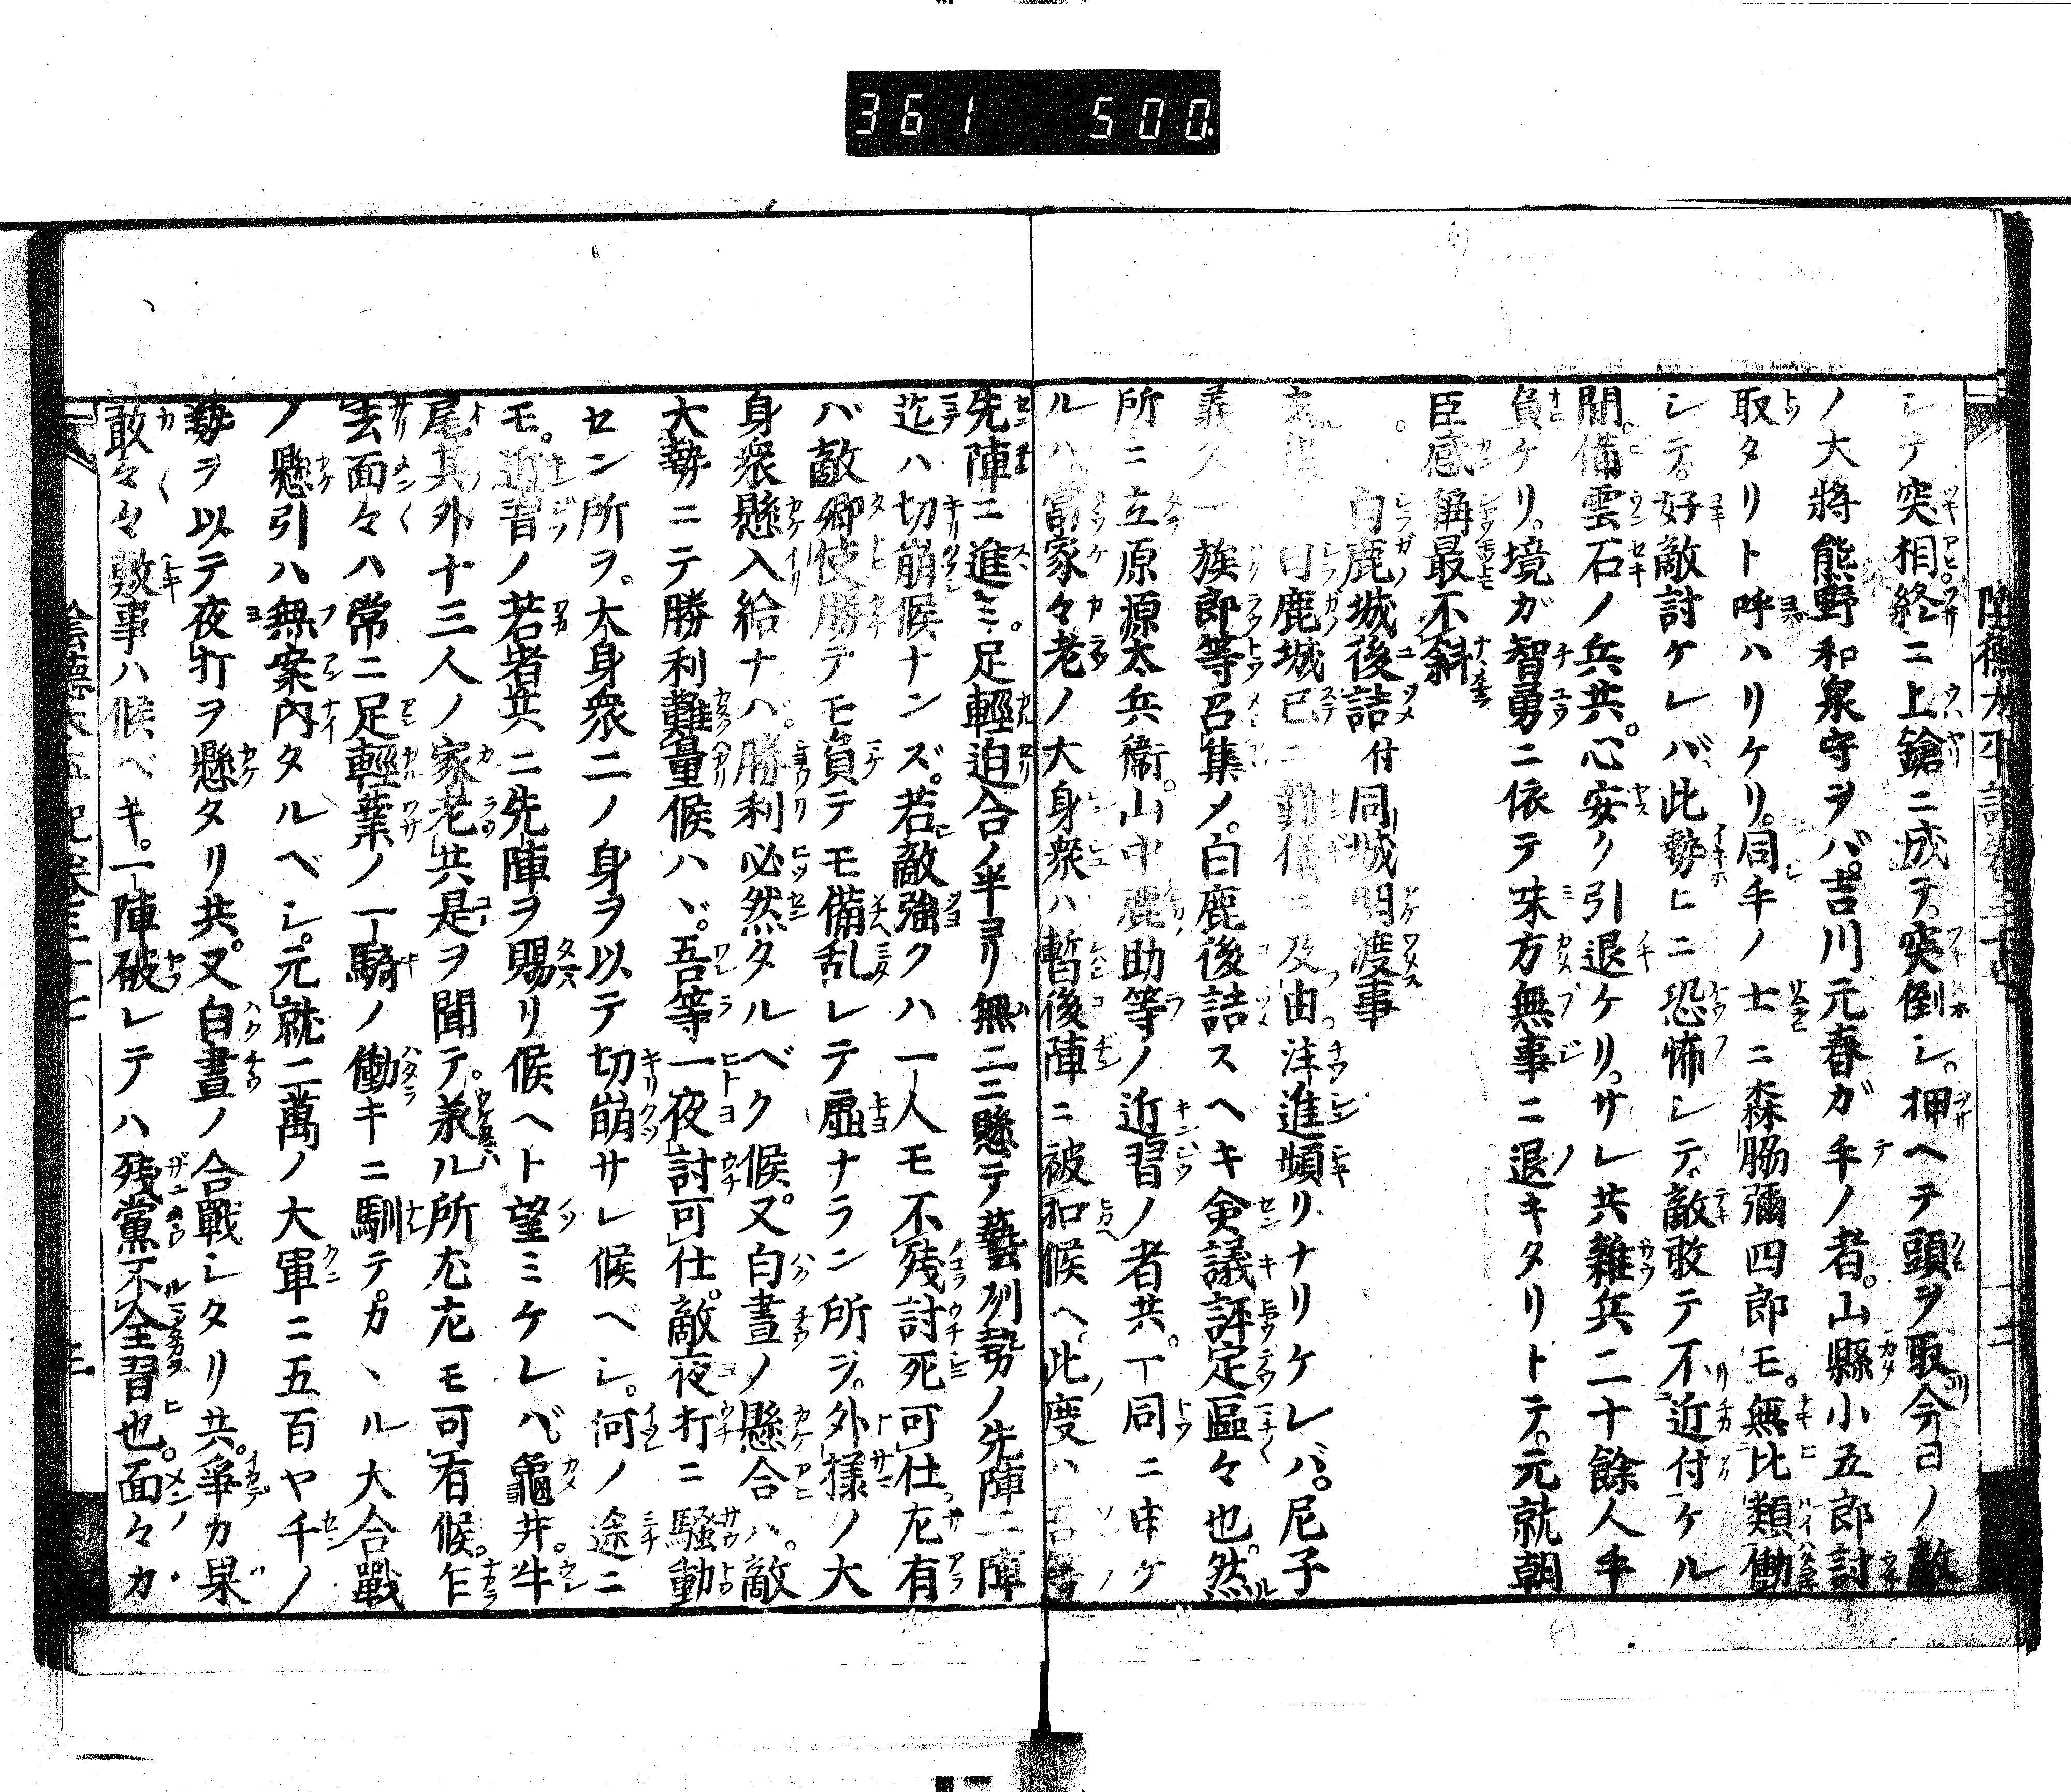 361 500.
シテ突相終ニ上鎗ニ成テ突倒シ。押ヘテ頭ヲ取今日ノ敵
ノ大將熊野和泉守ヲバ。吉川元春ガ手ノ者。山縣小五郎討
取タリト呼ハリケリ。同手ノ士ニ森脇彌四郎モ。無比類働
シテ。好敵討ケレバ此勢ヒニ恐怖シテ。敵敢テ不近付ケル
間。備雲石ノ兵共。心安ク引退ケリ。サレ共雜兵二十餘人手
負ケリ。境ガ智勇ニ依テ味方無事ニ退キタリトテ。元就朝
臣感稱最不斜
白鹿城後詰付同城明渡事
白鹿城已ニ難儀ニ及由。注進頻リナリケレバ。尼子
義久一族郎等召集メ。白鹿後詰スベキ僉議評定區々也。然
所ニ立原源太兵衞。山中鹿助等ノ近習ノ者共。一同ニ申ケ
ルハ當家々老ノ大身衆ハ暫後陣ニ被扣候ヘ。此度ハ吾等
先陣ニ進ミ。足輕迫合ノ半ヨリ無二ニ懸テ藝州勢ノ先陣二陣
迄ハ切崩候ナンズ。若敵強クハ一人モ不殘討死可仕。左有
バ敵卿使勝テモ負テモ備乱レテ虚ナラン所ヲ。外様ノ大
身衆懸入給ナハ。勝利必然タルベク候。又白晝ノ懸合ハ。敵
大勢ニテ勝利難量候ハヽ。吾等一夜討可仕。敵夜打ニ騷動
セン所ヲ。大身衆二ノ身ヲ以テ切崩サレ候ベシ。何ノ途ニ
モ。近習ノ若者共ニ先陣ヲ賜リ候ヘト望ミケレバ。龜井。牛
尾其外十三人ノ家老共是ヲ聞テ。兼ル所尤尤モ可有候。乍
去面々ハ常ニ足輕業ノ一騎ノ働キニ馴テ。カヽル大合戰
ノ懸引ハ無案内タルベシ。元就二萬ノ大軍ニ五百ヤ千ノ
勢ヲ以テ夜打ヲ懸タリ共。又白晝ノ合戰シタリ共。爭カ果
敢々々敷事ハ候ベキ。一陣破レテハ殘黨不全習也。面々カ